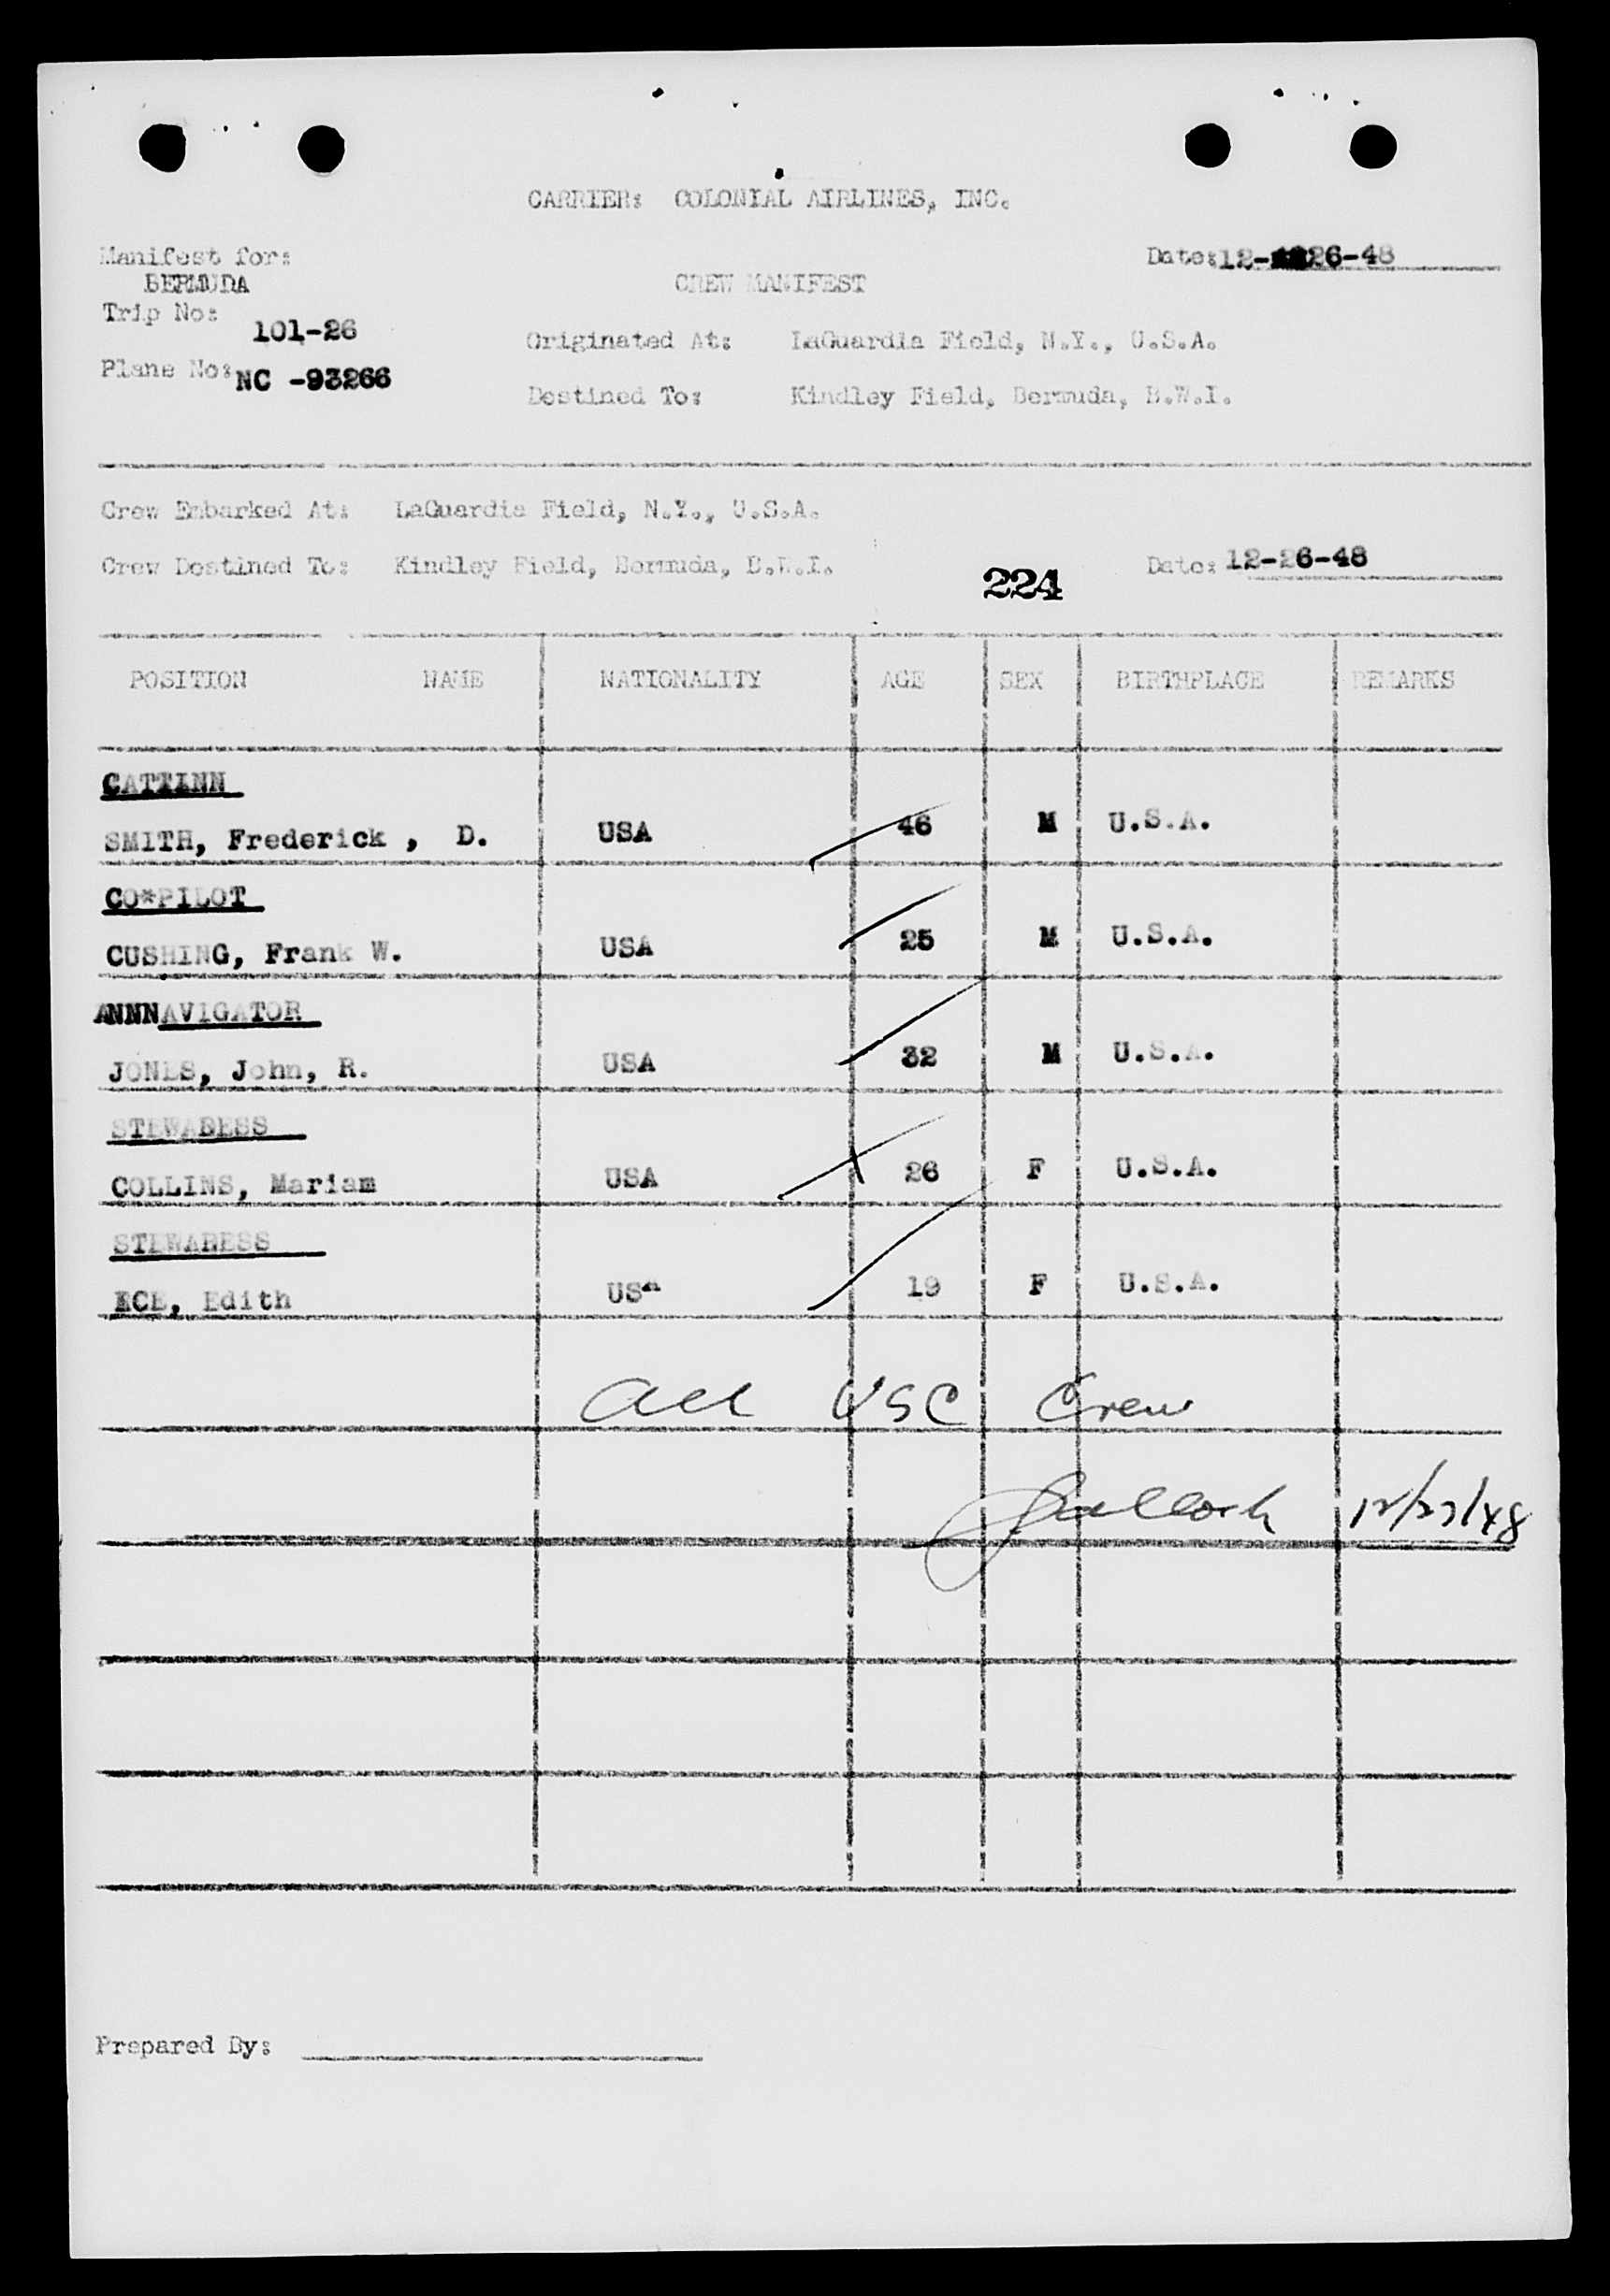 CARRIER: COLONIAL AIRLINES, INC.
Manifest for: Date: 12-26-48
BERMUDA CREW MANIFEST
Trip No: 101-26
Originated At: LaGuardia Field, N.Y., U.S.A.
Plane No: NC -93266
Destined To: Kindley Field, Bermuda, B.W.I.
Crew Embarked At: LaGuardia Field, N.Y., U.S.A.
Crew Destined To: Kindley Field, Bermuda, B.W.I. Date: 12-26-48
224
POSITION NAME NATIONALITY AGE SEX BIRTHPLACE REMARKS
SMITH, Frederick , D. USA 46 M U.S.A.
CO*PILOT
CUSHING, Frank W. USA 25 M U.S.A.
ANNNAVIGATOR
JONES, John, R. USA 32 M U.S.A.
COLLINS, Mariam USA 26 F U.S.A.
Edith USA 19 F U.S.A.
All USC Crew
12/27/48
Prepared By: